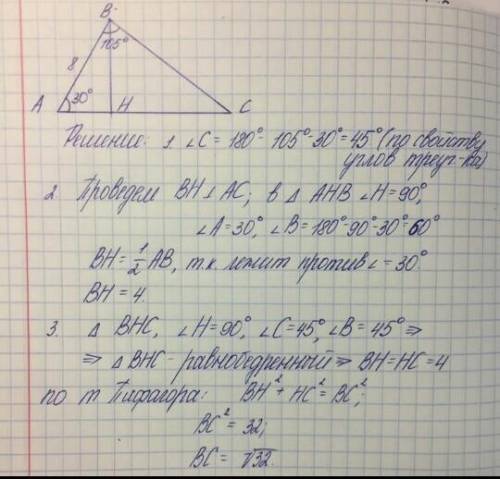 B
105°
8
A 30° H C
Решение: 1. ∠C = 180° - 105° - 30° = 45° (по свойству
углов треуг-ка)
2. Проведем BH ⊥ AC; в △ AHB ∠H = 90°,
∠A = 30°, ∠B = 180° - 90° - 30° = 60°
BH = 1/2 AB, т.к. лежит против ∠ = 30°.
BH = 4.
3. △ BHC, ∠H = 90°, ∠C = 45°, ∠B = 45° ⇒
⇒ △ BHC - равнобедренный ⇒ BH = HC = 4
по т Пифагора: BH² + HC² = BC²;
BC² = 32;
BC = √32.